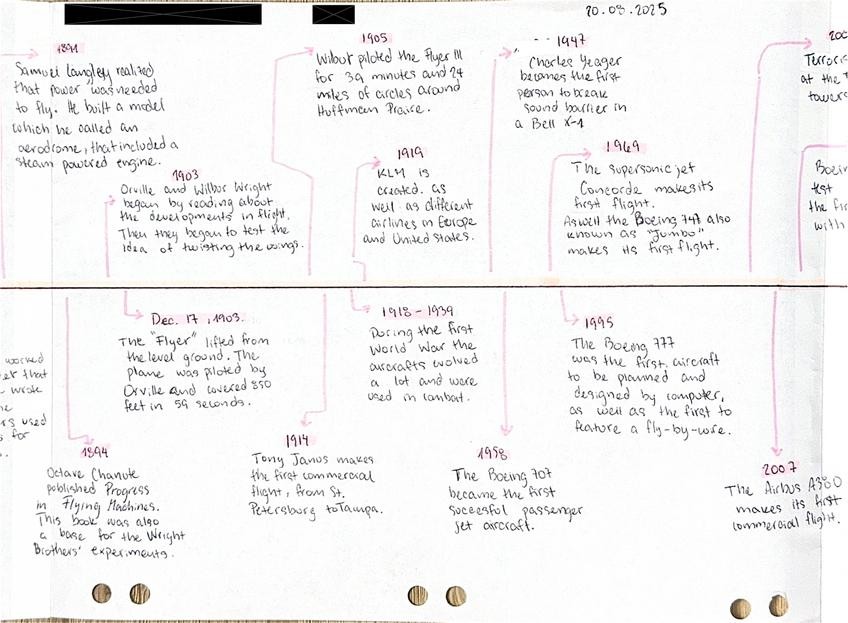 20.08.2025
1891
Samuel Langley realized
that power was needed
to fly. He built a model
which he called an
aerodrome, that included a
steam powered engine.
1903
Orville and Wilbor Wright
began by reading about
the developments in flight.
Then they began to test the
idea of twisting the wings.
1905
Wilbut piloted the Flyer III
for 39 minutes and 24
miles of circles around
Huffman Praire.
1919
KLM is
created. as
well as different
airlines in Europe
and United States.
1947
Charles Yeager
becomes the first
person to break
sound barrier in
a Bell X-1
1969
The supersonic jet
Concorde makes its
first flight.
Aswell the Boeing 747 also
known as "Jumbo"
makes its first flight.
200
Terroris
at the T
towers
Boein
test
the fir
with
worked
et that
wrote
he
rs used
s for
Dec. 17, 1903.
The "Flyer" lifted from
the level ground. The
plane was piloted by
Orville and covered 850
feet in 59 seconds.
1894
Octave Chanute
published Progress
in Flying Machines.
This book was also
a base for the Wright
Brothers' experiments.
1914
Tony Janus makes
the first commercial
flight, from St.
Petersburg to Tampa.
1918 - 1939
During the first
World War the
aircrafts evolved
a lot and were
used in combat.
1958
The Boeing 707
became the first
succesful passenger
jet aircraft.
1995
The Boeing 777
was the first aircraft
to be planned and
designed by computer,
as well as the first to
feature a fly-by-wire.
2007
The Airbus A380
makes its first
commercial flight.